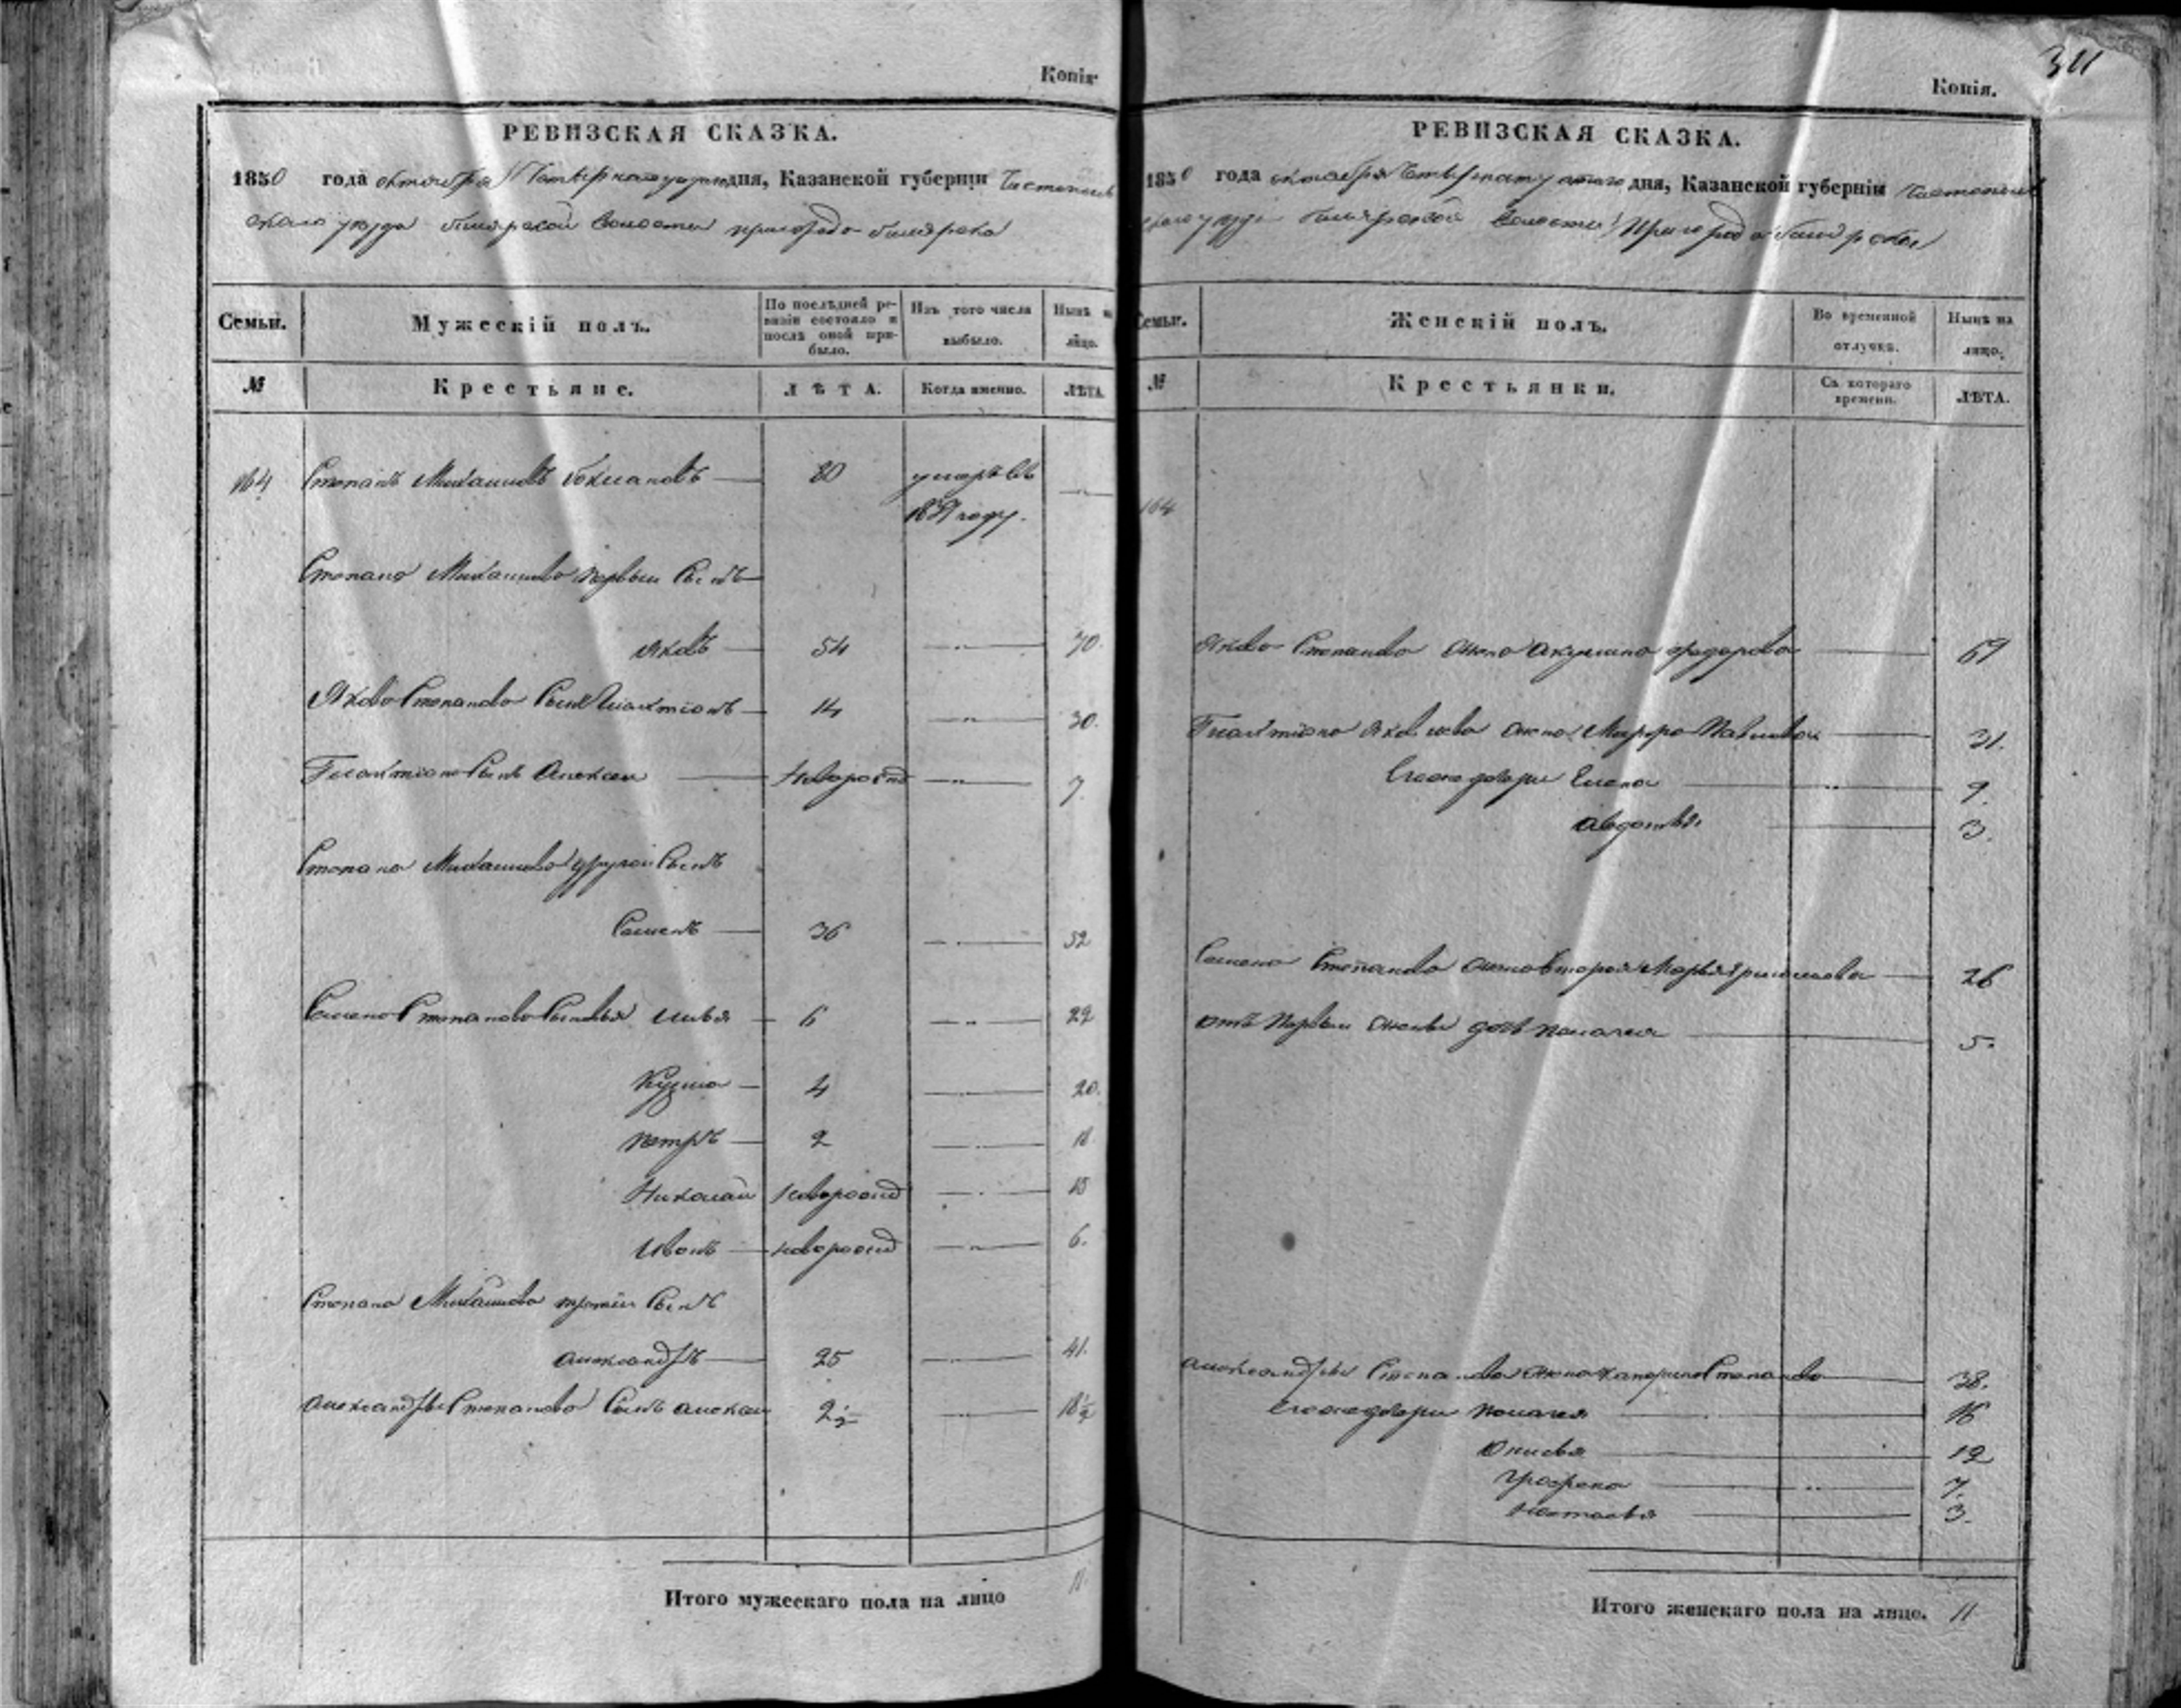 Копія
РЕВИЗСКАЯ СКАЗКА.
1850 года октября дня, Казанской губерніи Чистополь
скаго уезда билярской волости пригорода билярска
Семьи. Мужескій полъ. По послѣдней ревизіи состояло и послѣ оной прибыло. Изъ того числа выбыло. Нынѣ на лицо.
№ Крестьяне. ЛѢТА. Когда именно. ЛѢТА.
164 Степанъ Михаиловъ 80 умеръ въ
году.
Степана Михаилова первый Сынъ
Яковъ 54 70.
Якова Степанова Сынъ Галактіонъ 14 30.
Галактіона Сынъ Алексей новорожд 7.
Степана Михаилова другой Сынъ
Семенъ 36 52
Семена Степанова Сыновья Илья 6 22
Кузма 4 20.
Петръ 2 18
Николай новорожд 15
Иванъ новорожд 6.
Степана Михаилова третій Сынъ
Александръ 25 41.
Александра Степанова Сынъ Алексей 2½ 18½
Итого мужескаго пола на лицо 11
311
Копія.
РЕВИЗСКАЯ СКАЗКА.
1850 года октября дня, Казанской губерніи Чистополь
скаго уезда билярской волости Пригорода билярска
Семьи. Женскій полъ. Во временной отлучкѣ. Нынѣ на лицо.
№ Крестьянки. Съ котораго времени. ЛѢТА.
164
Якова Степанова жена Акулина Федорова 69
Галактіона Яковлева жена Марфа Павлова 31.
Егоже дочери Елена 9.
Авдотья 3.
Семена Степанова жена вторая Марья 26
отъ Первой жены дочь Пелагея 5.
Александры Степанова жена Катерина Степанова 38.
Егоже дочери Пелагея 16
Анисья 12
Графена 7.
Настасья 3.
Итого женскаго пола на лицо. 11